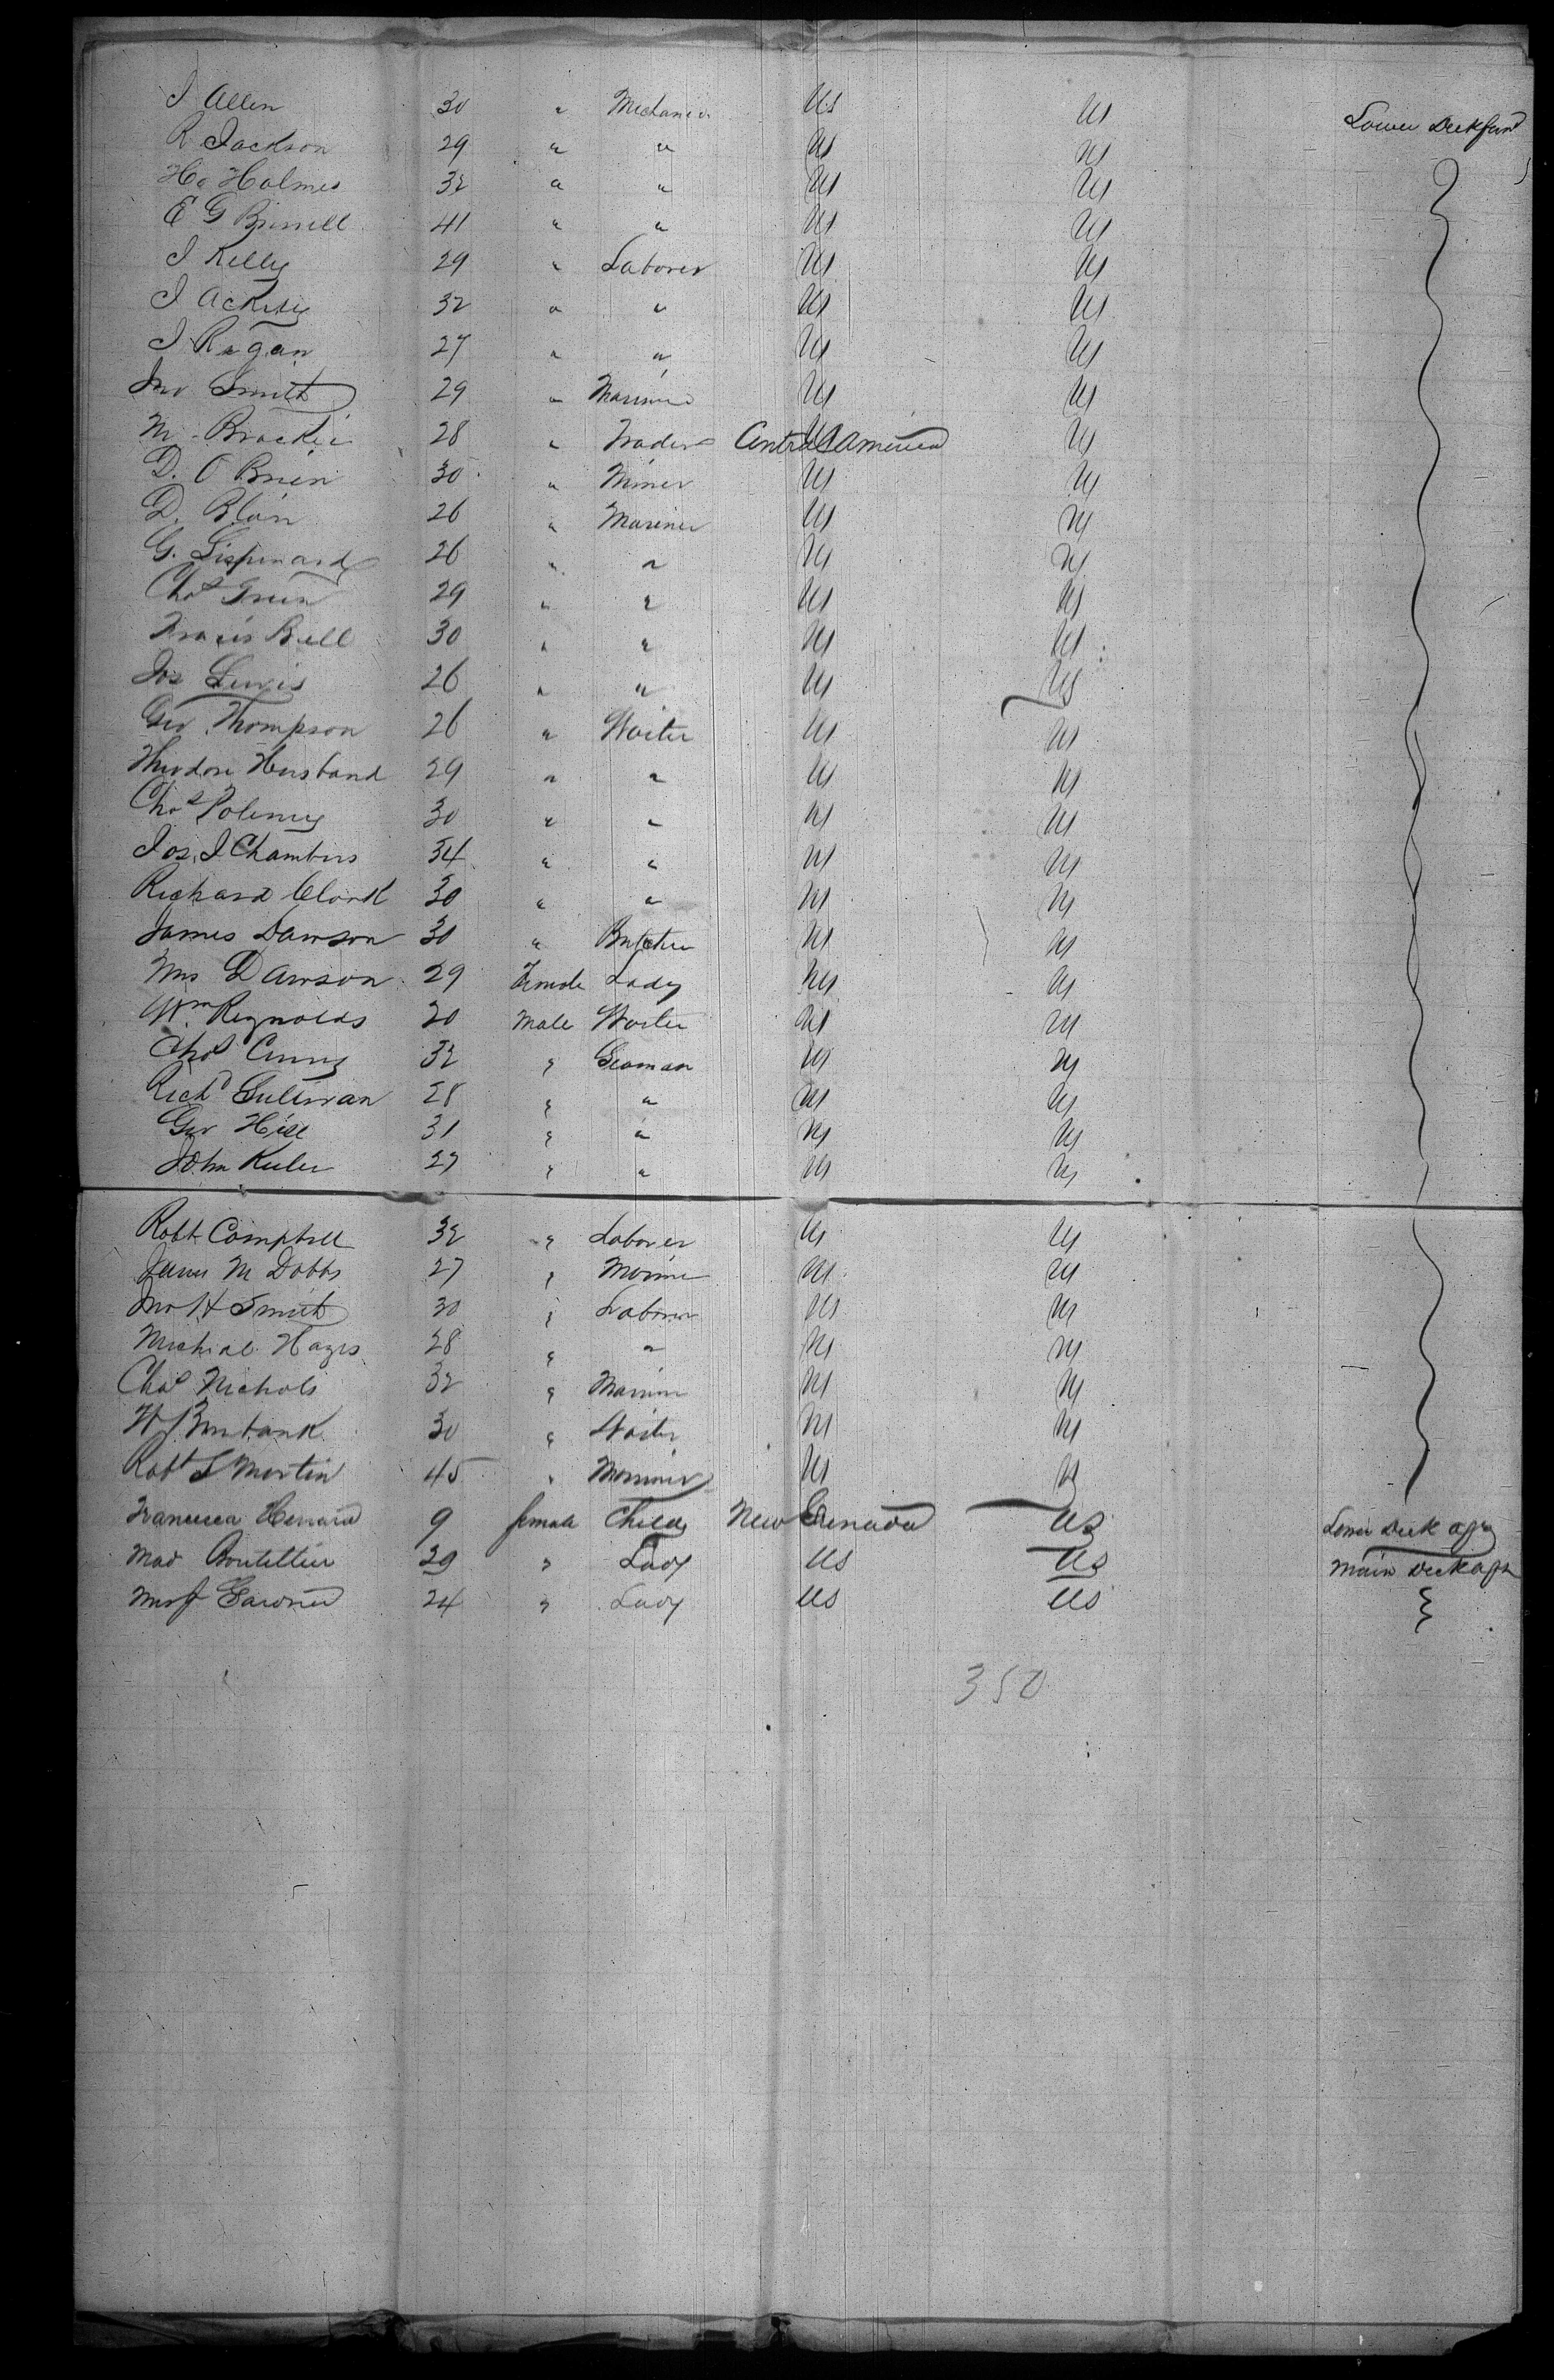 J Allen 30 " Mechanic US US Lower Deck forwd
R Jackson 29 " " US US
Ho Holmes 32 " " US US
E G Burrell 41 " " US US
J Kelly 29 " Laborer US US
J 32 " " US US
J Ragan 27 " " US US
Jno Smith 29 " Mariner US US
M 28 " Trader Central America US
D. O Brien 30 " Miner US US
D. Blair 26 " Mariner US US
G. Lispinard 26 " " US US
Chas Green 29 " " US US
Bell 30 " " US US
Jos Lewis 26 " " US US
Geo Thompson 26 " Waiter US US
Theodore Husband 29 " " US US
Chas 30 " " US US
Jos. J Chambers 34 " " US US
Richard Clark 30 " " US US
James Dawson 30 " Butcher US US
Mrs Dawson 29 Female Lady US US
Wm Reynolds 20 Male Waiter US US
Chas 32 " Seaman US US
Richd Sullivan 28 " " US US
Geo Hill 31 " " US US
John 27 " " US US
Robt Campbell 32 " Laborer US US
James M Dobbs 27 " US US
Jno H Smith 30 " Laborer US US
Michael Hayes 28 " " US US
Chas Nichols 32 " Mariner US US
H Burbank 30 " Waiter US US
Robt S Martin 45 " Mariner US US
Francisca 9 female Child New Grenada US Lower Deck aft
Mad 29 " Lady US US Main Deck aft
24 " Lady US US
350